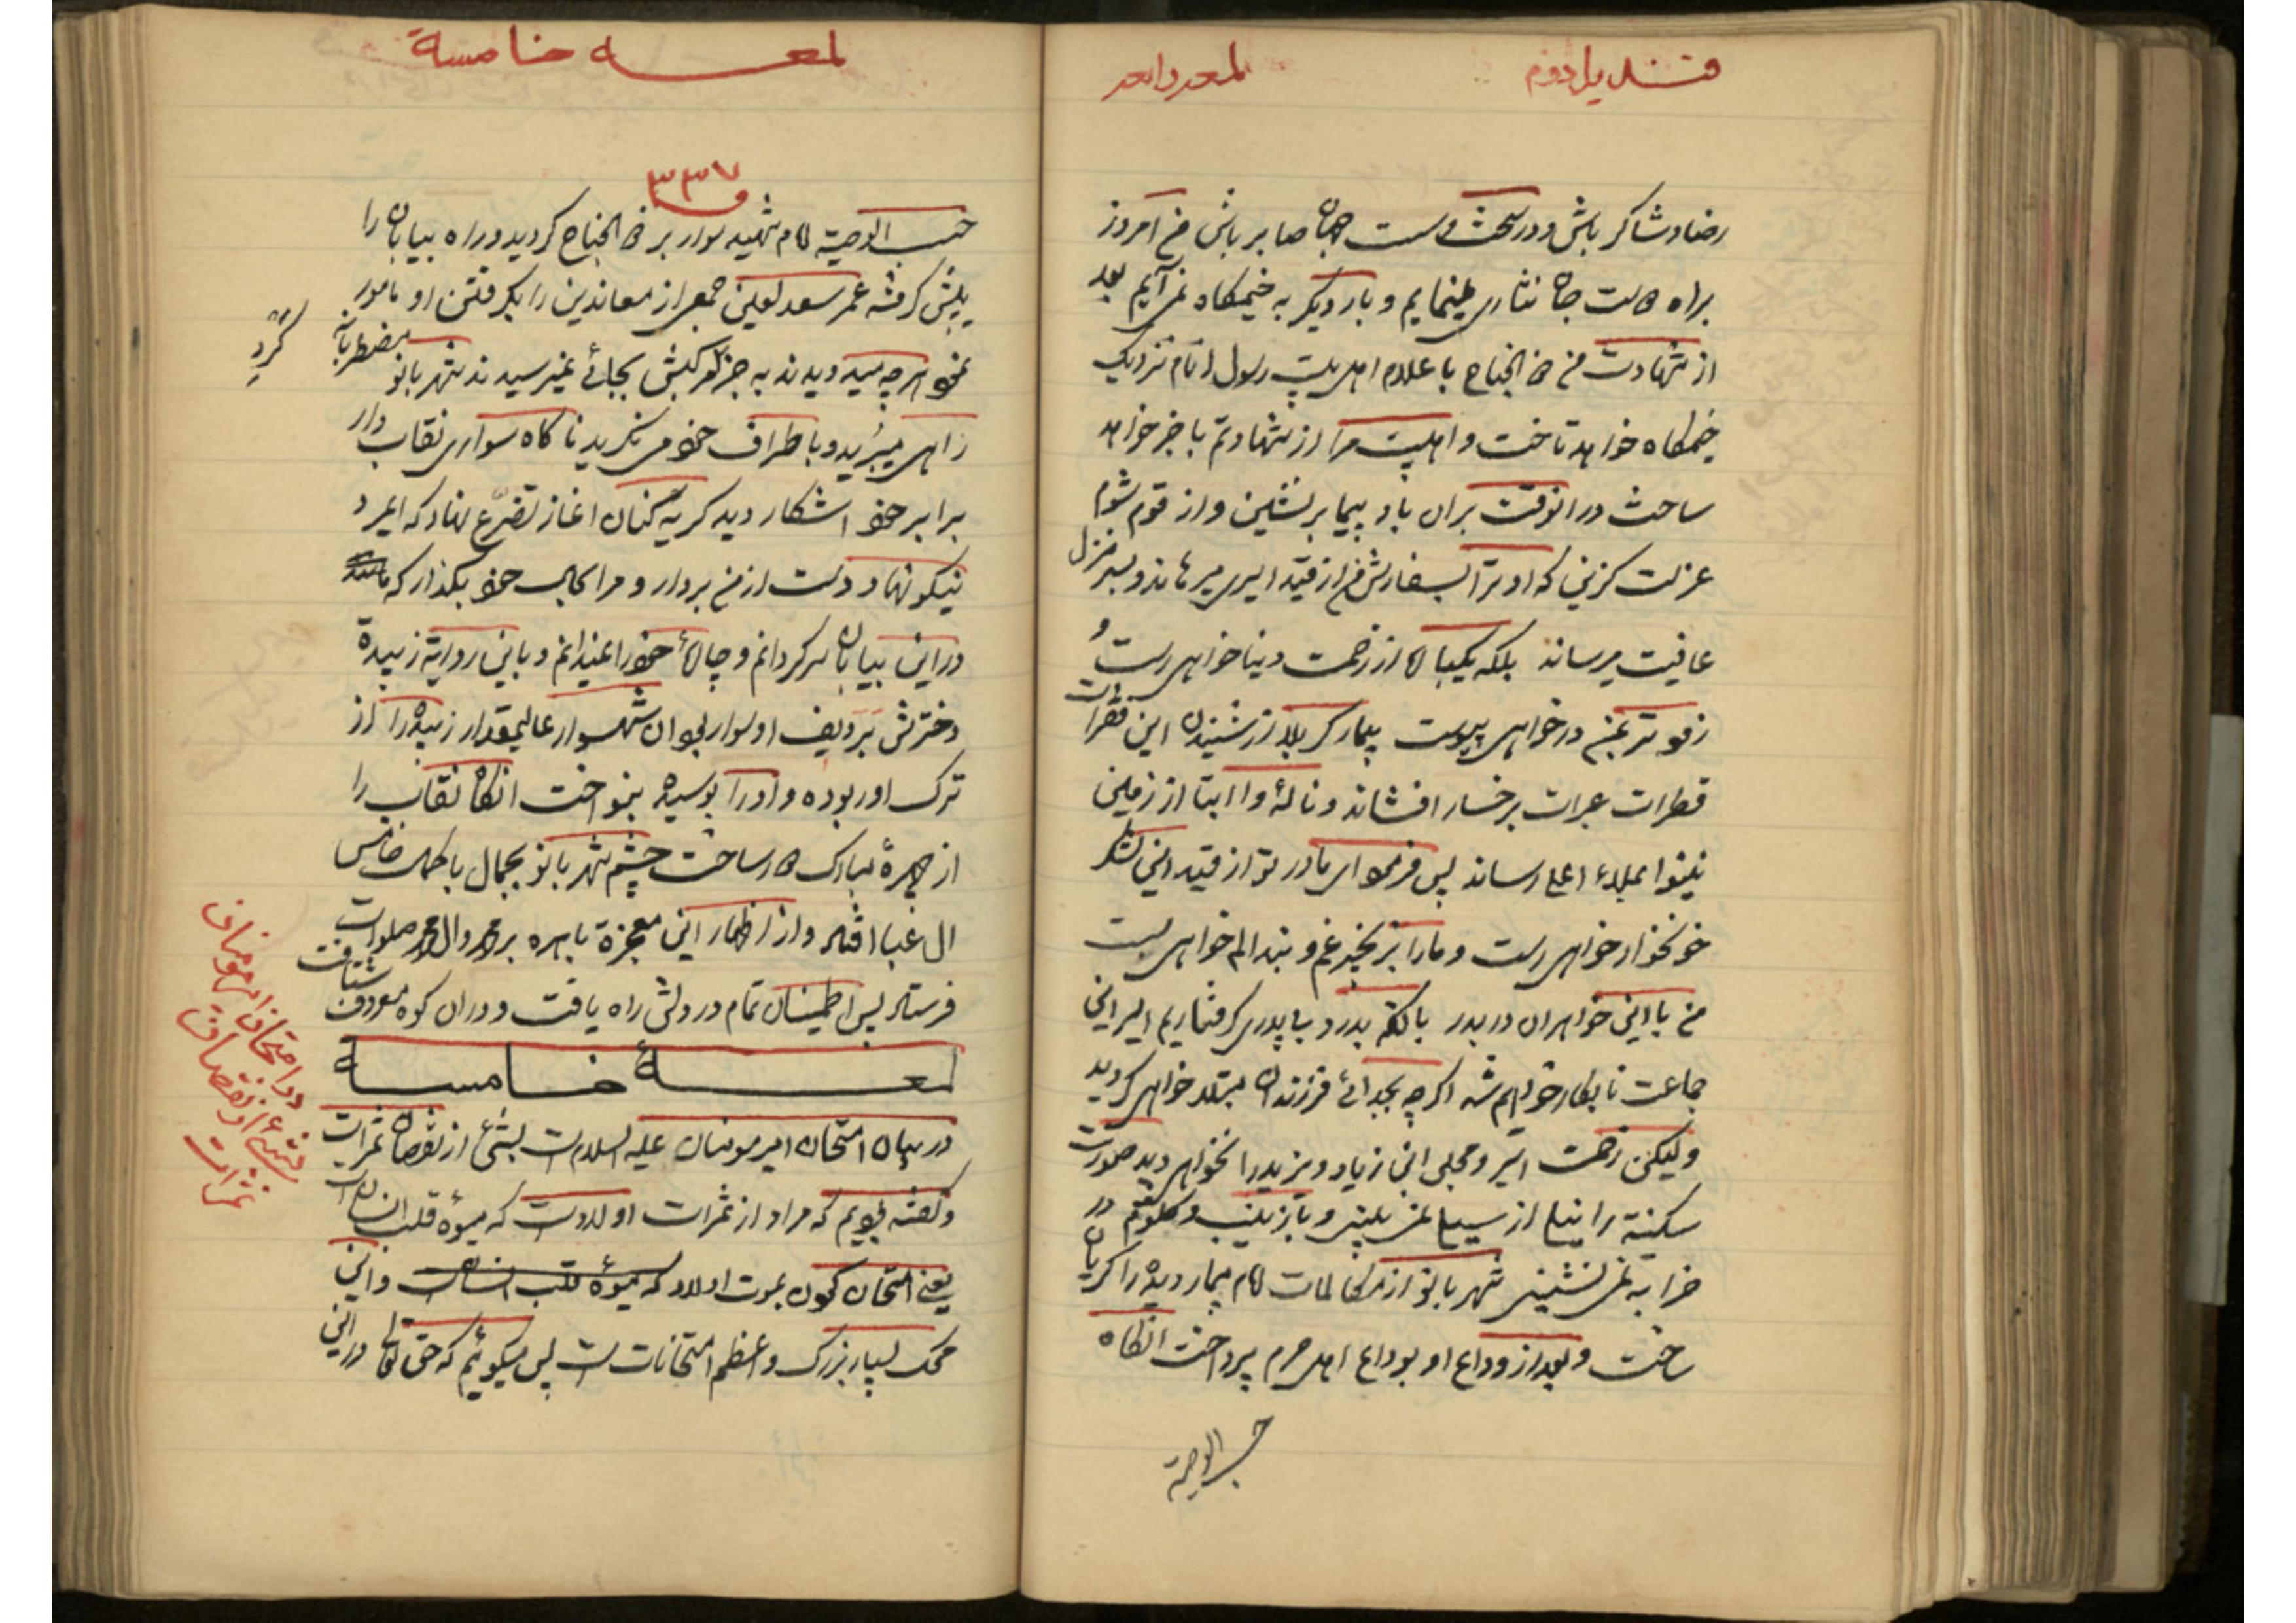 قندیل دوم
لمعه رابعه
رضا و شاکر باش و در سخت و سست جهان صابر باش من امروز
براه امت جان نثاری مینمایم و بار دیگر به خیمگاه نمی آیم بعد
از شهادت من ذو الجناح با علام اهل بیت رسول انام نزدیک
خیمگاه خواهد تاخت و اهلبیت مرا از شهادتم با خبر خواهد
ساخت در انوقت بران باد پیما بر نشین و از قوم شوم
عزلت گزین که او ترا بسفارش من از قید اسیری میرهاند و بسر منزل
عافیت میرساند بلکه یکبار از زحمت دنیا خواهی رست و
زفو تر بمن در خواهی پیوست بیمار کربلا از شنیدن این فقرات
قطرات عبرات بر خسار افشاند و ناله وا ابتا از زمین
نینوا بملاء اعلی رساند پس فرمود ای مادر تو از قید این لشکر
خونخوار خواهی رست و مارا بزنجیر غم و بند الم خواهی بست
من با این خواهران در بدر با کمه بدرد بی پدری گرفتاریم اسیر این
جماعت نابکار خواهم شد اگر چه بجدائی فرزندان مبتلا خواهی گردید
ولیکن زحمت اسر و مجلس ابن زیاد و یزید را نخواهی دید صورت
سکینه را نیلی از سیلی نمی بینی و با زینب و کلثوم در
خرابه نمی نشینی شهر بانو از مکالمات امام بیمار دیده را گریان
ساخت و بعد از وداع او بوداع اهل حرم پرداخت انگاه
حسب الوصیة
لمعه خامسة
۳۳۷
حسب الوصیة امام شهید سوار بر ذو الجناح گردید و راه بیابان را
پیش گرفته عمر سعد لعین جمعی از معاندین را بگرفتن او مامور
نمود هر چه میدویدند به جز گرد کبش بجائے نمیرسیدند شهر بانو مضطربانه
گرد
راهی میبرید و باطراف خود می نگرید ناگاه سواری نقاب دار
برابر خود اشکار دید گریه کنان اغاز تضرّع نهاد که ایمرد
نیکو نهاد دست از من بردار و مرا بحالت خود بگذار که
در این بیابان سرگردانم و چارهٔ خود را نمیدانم و باین روایة زبیدة
دخترش بَرَدیف او سوار بود ان شهسوار عالیمقدار زبیده را از
ترک او ربوده و او را بوسیده بنواخت انگاه نقاب را
از چهرهٔ مبارک دور ساخت چشم شهر بانو بجمال با کمال خامس
ال عبا افتاد و از اظهار این معجزة باهره بر محمد وال محمد صلوات
فرستاد پس اطمینان تمام در دلش راه یافت و در ان کوه معروف شتافت
لمعهٔ خامسه
در بیان امتحان امیر مومنان علیه السلام است بشئ از نقصان ثمرات
در امتحان امیر مومنان
بشئ از نقصان
ثمرات
و گفته بودیم که مراد از ثمرات اولادست که میوهٔ قلب انسان است
یعنی امتحان کردن بموت اولاد که میوهٔ قلب انسان است و این
محک بسیار بزرگ و اعظم امتحانات است پس میگوئیم که حق تعالی در این